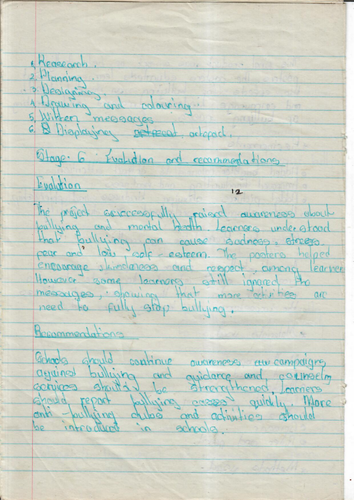 1. Research.
2. Planning.
3. Designing.
4. Drawing and colouring.
5. Written messages
6. Displaying artefact.
Stage: 6 Evaluation and recommendations
Evaluation
12
The project successfully raised awareness about
bullying and mental health. Learners understood
that bullying can cause sadness, stress,
fear and low self-esteem. The posters helped
encourage kindness and respect among learner
However some learners still ignored the
messages, showing that more activities are
need to fully stop bullying.
Recommendations
Schools should continue awareness campaigns
against bullying and guidance and counseling
services should be strengthened. Learners
should report bullying cases quickly. More
anti-bullying clubs and activities should
be introduct in schools.